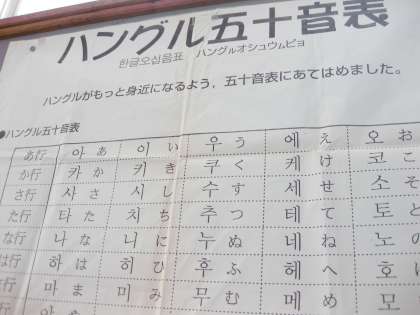 ハングル五十音表
한글오십음표 ハングルオシュウムピョ
ハングルがもっと身近になるよう，五十音表にあてはめました。
●ハングル五十音表
あ行 아 あ 이 い 우 う 에 え 오 お
か行 카 か 키 き 쿠 く 케 け 코 こ
さ行 사 さ 시 し 수 す 세 せ 소 そ
た行 타 た 치 ち 추 つ 테 て 토 と
な行 나 な 니 に 누 ぬ 네 ね 노 の
は行 하 は 히 ひ 후 ふ 헤 へ 호 ほ
ま行 마 ま 미 み 무 む 메 め 모